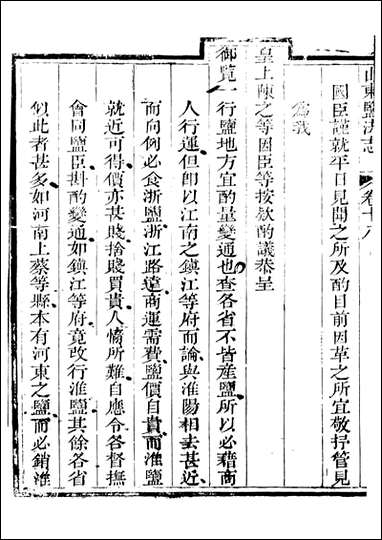 山東鹽法志 卷十八
國臣謹就平日見聞之所及酌目前因革之所宜敬抒管見
為我
皇上陳之等因臣等按欵酌議奏呈
御覽一行鹽地方宜酌量變通也查各省不皆產鹽所以必藉商
人行運但卽以江南之鎮江等府而論與淮陽相去甚近
而向例必食浙鹽浙江路遠商運需費鹽價自貴而淮鹽
就近可得價亦甚賤捨賤買貴人情所難自應令各督撫
會同鹽臣斟酌變通如鎮江等府竟改行淮鹽其餘各省
似此者甚多如河南上蔡等縣本有河東之鹽而必銷淮